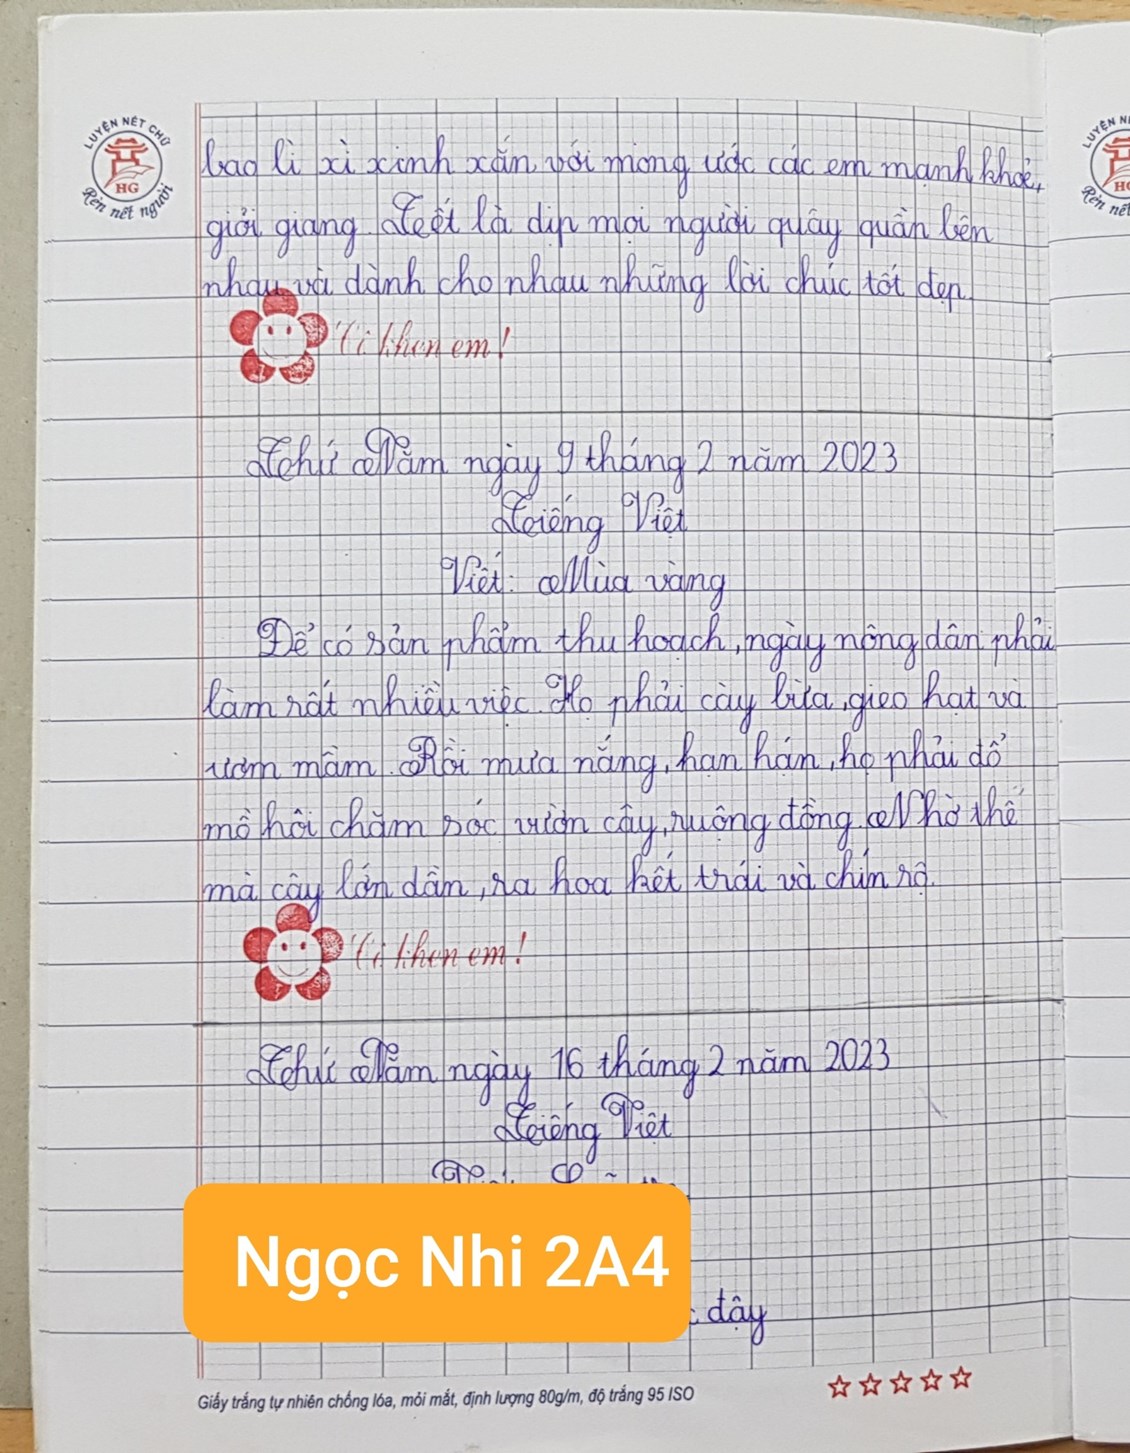 LUYỆN NÉT CHỮ
HG
Rèn nết người
LUYỆN
bao lì xì xinh xắn, với mong ước các em mạnh khoẻ,
giỏi giang. Tết là dịp mọi người quây quần bên
nhau và dành cho nhau những lời chúc tốt đẹp.
khen em!
Thứ Năm ngày 9 tháng 2 năm 2023
Tiếng Việt
Viết: Mùa vàng
Để có sản phẩm thu hoạch, ngày nông dân phải
làm rất nhiều việc. Họ phải cày bừa, gieo hạt và
ươm mầm. Rồi mưa nắng, hạn hán, họ phải đổ
mồ hôi chăm sóc vườn cây, ruộng đồng. Nhờ thế
mà cây lớn dần, ra hoa kết trái và chín rộ.
khen em!
Thứ Năm ngày 16 tháng 2 năm 2023
Tiếng Việt
Ngọc Nhi 2A4
dậy
Giấy trắng tự nhiên chống lóa, mỏi mắt, định lượng 80g/m, độ trắng 95 ISO